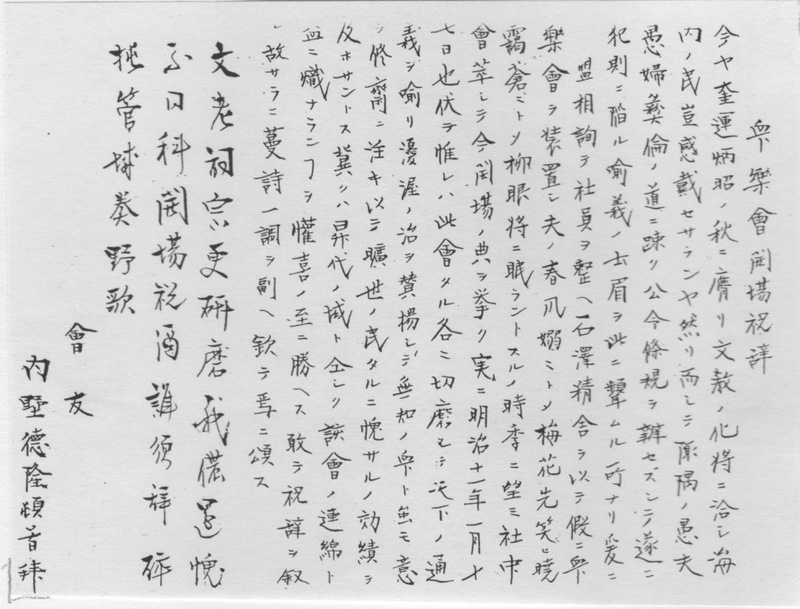 衆樂會開場祝辞
今ヤ奎運炳昭ノ秋ニ膺リ文敎ノ化將ニ洽シ海
内ノ民豈感戴セサランヤ然リ而シテ陬隅ノ愚夫
愚婦彜倫ノ道ニ疎ク公令條規ヲ辨セズシテ遂ニ
犯則ニ陥ル喩義ノ士眉ヲ此ニ顰ムル所ナリ爰ニ
盟相詢テ社員ヲ整ヘ石澤精舎ヲ以テ假ニ衆
樂會ヲ装置シ夫ノ春風嫋ミトメ梅花先笑ヒ暁
靄蒼ミトメ柳眼將ニ眠ラントスルノ時季ニ望ミ社中
會萃シテ今開場ノ典ヲ挙ク実ニ明治十一年一月十
七日也伏ヲ惟レハ此會タル各ミ切磨シテ天下ノ通
義ヲ喩リ優渥ノ治ヲ賛揚シテ無知ノ衆ト虽モ意
ヲ修齋ニ注キ以テ曠世ノ民タルニ愧サルノ効績ヲ
及ホサントス冀クハ昇代ノ盛ト全シク該會ノ連綿ト
皿ニ熾ナランフヲ懽喜ノ至ニ勝ヘス敢テ祝辞ヲ叙
故サラニ蔓詩一調ヲ副ヘ欽テ焉ニ頌ス
文老詞宗更研磨我儂還愧
不日科開場祝酒誰須辞砕
挊管城奏野歌
會友
内墅德隆頓首拜